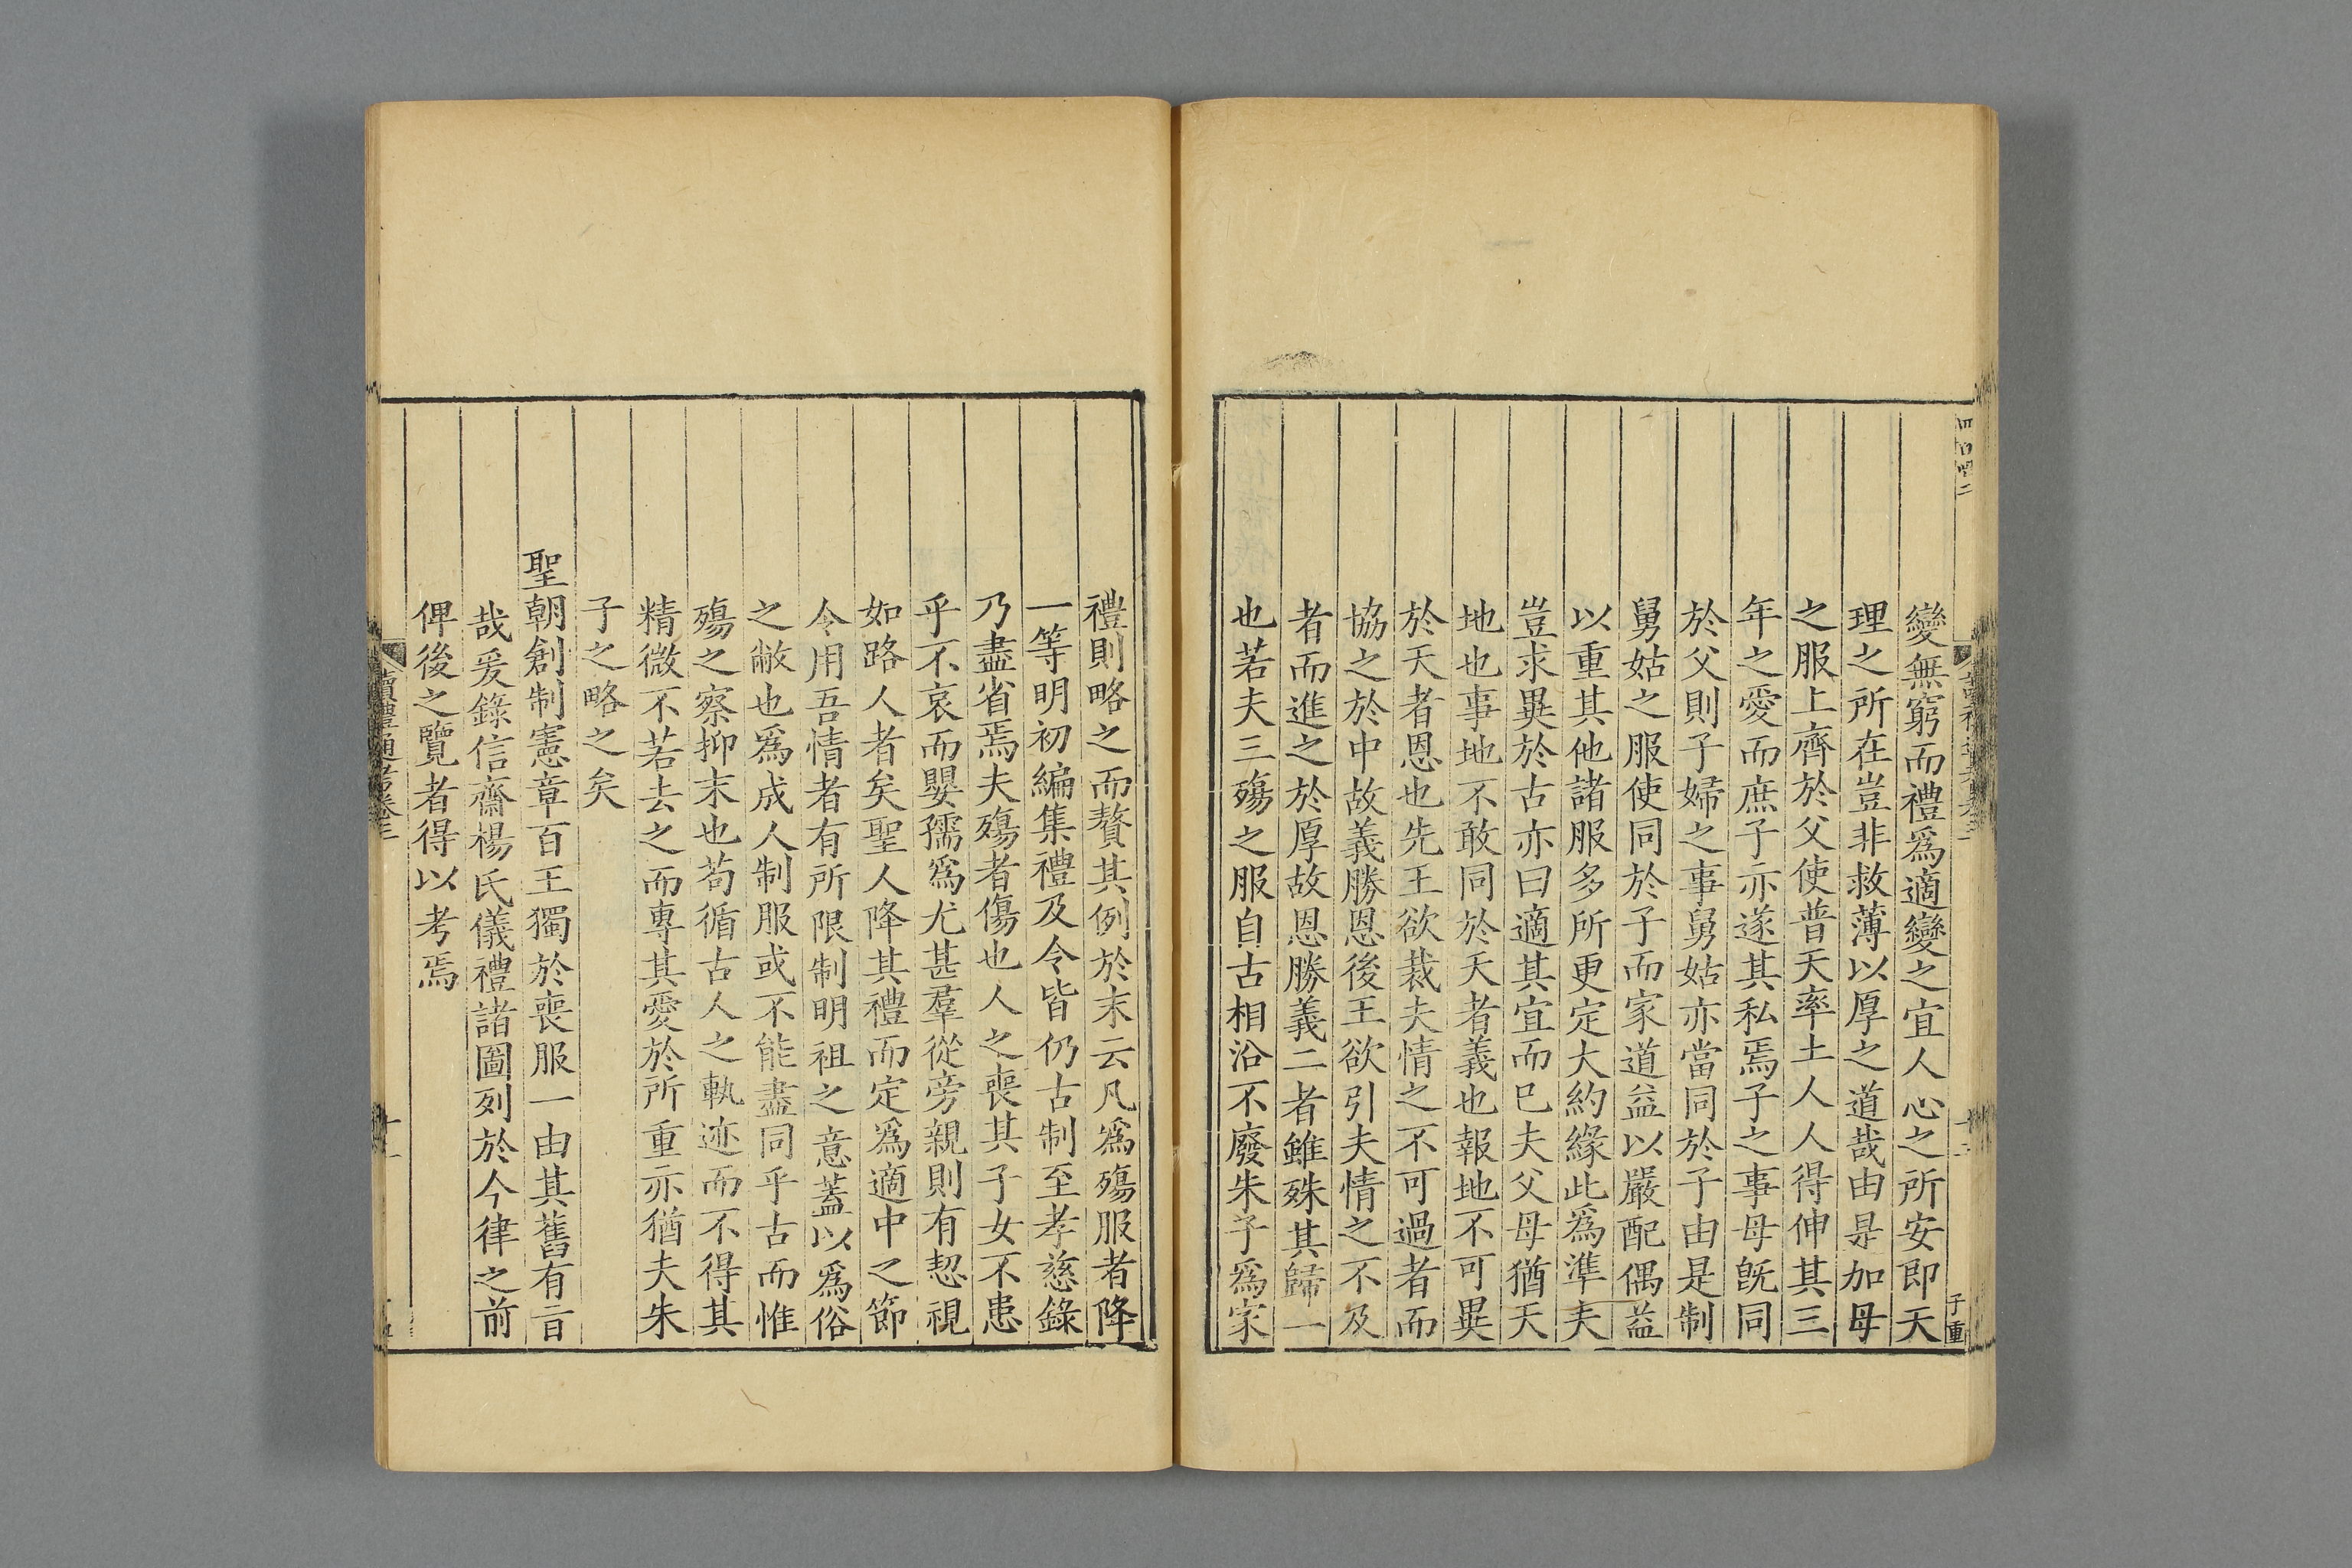 變無窮而禮爲適變之宜人心之所安即天
理之所在豈非救薄以厚之道哉由是加母
之服上齊於父使普天率土人人得伸其三
年之愛而庶子亦遂其私焉子之事母旣同
於父則子婦之事舅姑亦當同於子由是制
舅姑之服使同於子而家道益以嚴配偶益
以重其他諸服多所更定大約緣此爲準夫
豈求異於古亦曰適其宜而已夫父母猶天
地也事地不敢同於天者義也報地不可異
於天者恩也先王欲裁夫情之不可過者而
協之於中故義勝恩後王欲引夫情之不及
者而進之於厚故恩勝義二者雖殊其歸一
也若夫三殤之服自古相沿不廢朱子爲家
子重
禮則略之而贅其例於末云凡爲殤服者降
一等明初編集禮及令皆仍古制至孝慈錄
乃盡省焉夫殤者傷也人之喪其子女不患
乎不哀而嬰孺爲尤甚羣從旁親則有恝視
如路人者矣聖人降其禮而定爲適中之節
令用吾情者有所限制明祖之意蓋以爲俗
之敝也爲成人制服或不能盡同乎古而惟
殤之察抑末也苟循古人之軌迹而不得其
精微不若去之而專其愛於所重亦猶夫朱
子之略之矣
聖朝創制憲章百王獨於喪服一由其舊有旨
哉爰錄信齋楊氏儀禮諸圖列於今律之前
俾後之覽者得以考焉
讀禮通考卷三